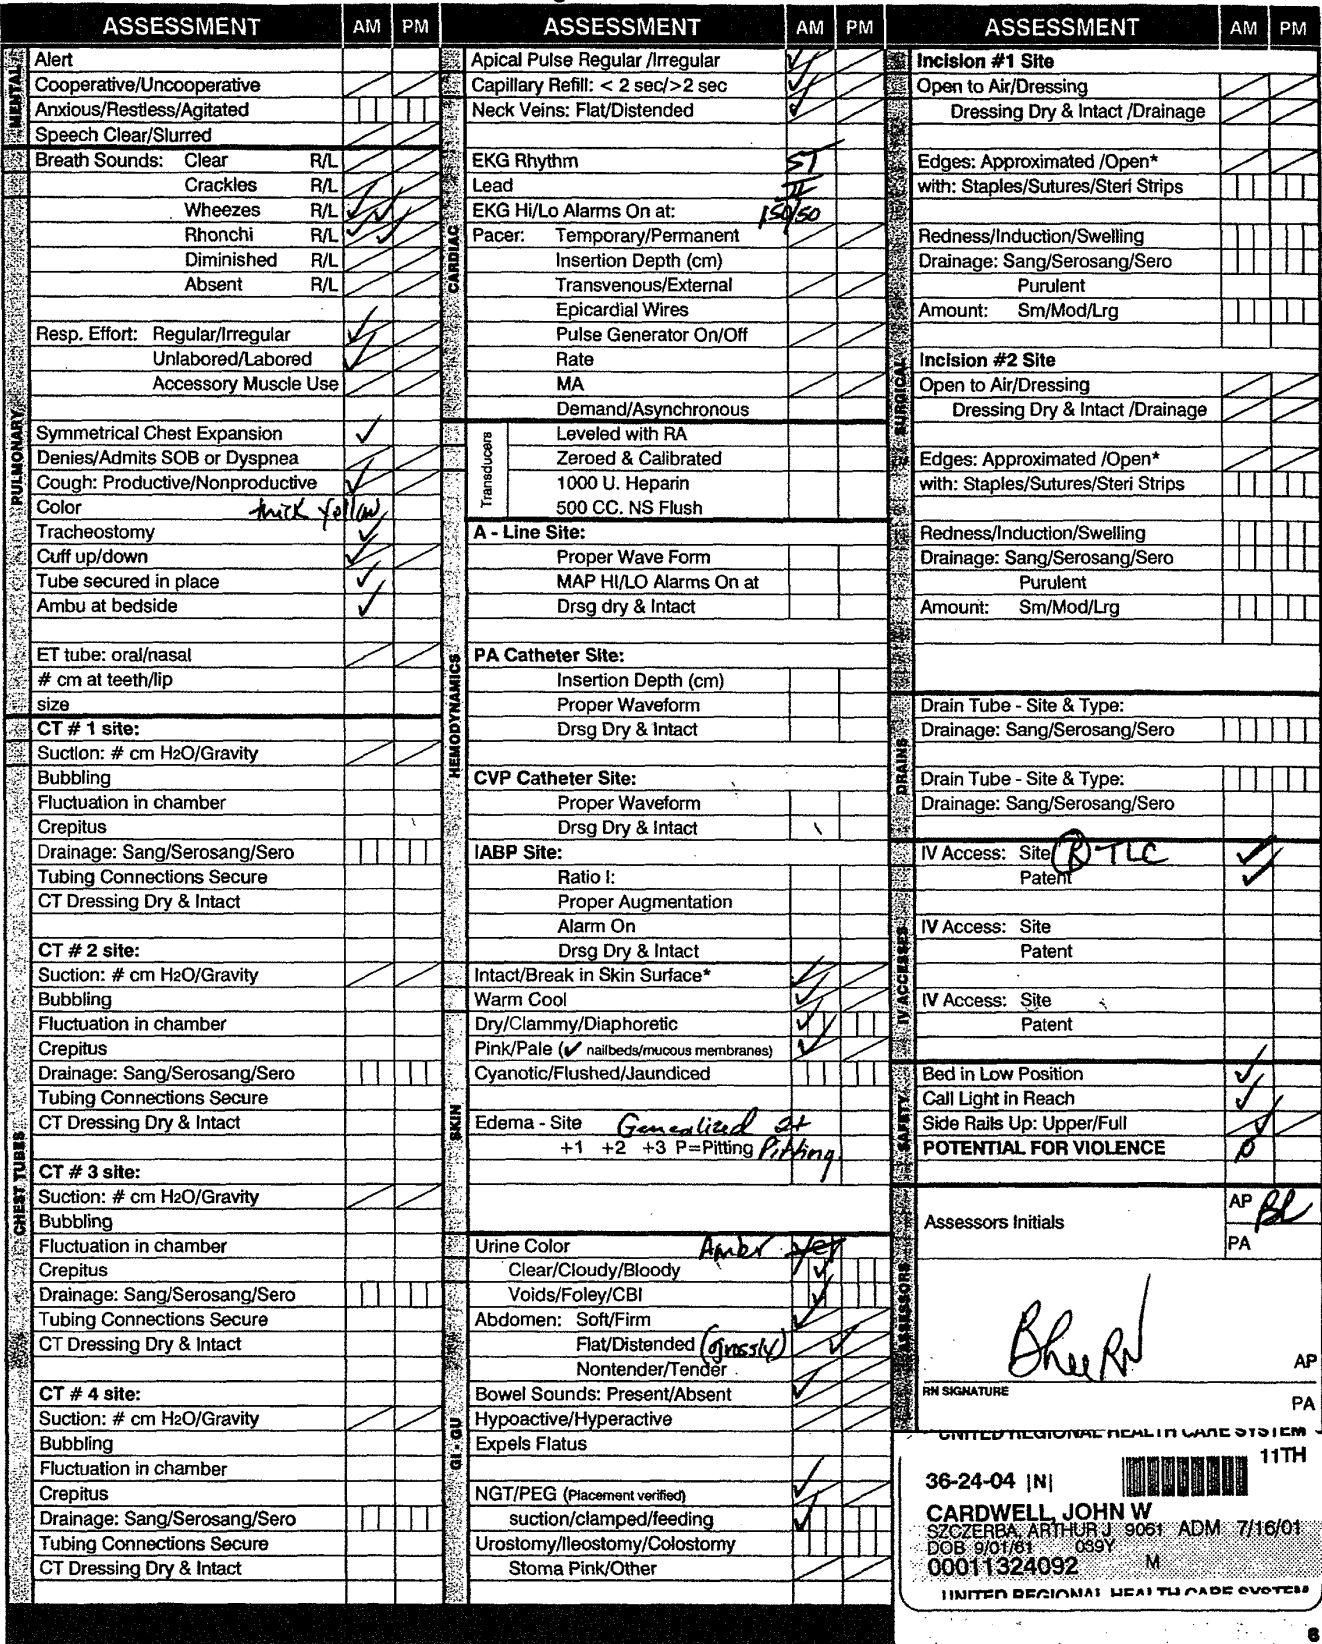 ASSESSMENT AM PM
MENTAL
Alert
Cooperative/Uncooperative
Anxious/Restless/Agitated
Speech Clear/Slurred
PULMONARY
Breath Sounds: Clear R/L
Crackles R/L
Wheezes R/L
Rhonchi R/L
Diminished R/L
Absent R/L
Resp. Effort: Regular/Irregular
Unlabored/Labored
Accessory Muscle Use
Symmetrical Chest Expansion
Denies/Admits SOB or Dyspnea
Cough: Productive/Nonproductive
Color thick yellow
Tracheostomy
Cuff up/down
Tube secured in place
Ambu at bedside
ET tube: oral/nasal
# cm at teeth/lip
size
CHEST TUBES
CT # 1 site:
Suction: # cm H2O/Gravity
Bubbling
Fluctuation in chamber
Crepitus
Drainage: Sang/Serosang/Sero
Tubing Connections Secure
CT Dressing Dry & Intact
CT # 2 site:
Suction: # cm H2O/Gravity
Bubbling
Fluctuation in chamber
Crepitus
Drainage: Sang/Serosang/Sero
Tubing Connections Secure
CT Dressing Dry & Intact
CT # 3 site:
Suction: # cm H2O/Gravity
Bubbling
Fluctuation in chamber
Crepitus
Drainage: Sang/Serosang/Sero
Tubing Connections Secure
CT Dressing Dry & Intact
CT # 4 site:
Suction: # cm H2O/Gravity
Bubbling
Fluctuation in chamber
Crepitus
Drainage: Sang/Serosang/Sero
Tubing Connections Secure
CT Dressing Dry & Intact
ASSESSMENT AM PM
CARDIAC
Apical Pulse Regular /Irregular
Capillary Refill: < 2 sec/>2 sec
Neck Veins: Flat/Distended
EKG Rhythm ST
Lead II
EKG Hi/Lo Alarms On at: 150/50
Pacer: Temporary/Permanent
Insertion Depth (cm)
Transvenous/External
Epicardial Wires
Pulse Generator On/Off
Rate
MA
Demand/Asynchronous
HEMODYNAMICS
Transducers
Leveled with RA
Zeroed & Calibrated
1000 U. Heparin
500 CC. NS Flush
A - Line Site:
Proper Wave Form
MAP HI/LO Alarms On at
Drsg dry & Intact
PA Catheter Site:
Insertion Depth (cm)
Proper Waveform
Drsg Dry & Intact
CVP Catheter Site:
Proper Waveform
Drsg Dry & Intact
IABP Site:
Ratio I:
Proper Augmentation
Alarm On
Drsg Dry & Intact
SKIN
Intact/Break in Skin Surface*
Warm Cool
Dry/Clammy/Diaphoretic
Pink/Pale (✓ nailbeds/mucous membranes)
Cyanotic/Flushed/Jaundiced
Edema - Site Generalized 2+
+1 +2 +3 P=Pitting Pitting
GI - GU
Urine Color Amber
Clear/Cloudy/Bloody
Voids/Foley/CBI
Abdomen: Soft/Firm
Flat/Distended (grossly)
Nontender/Tender
Bowel Sounds: Present/Absent
Hypoactive/Hyperactive
Expels Flatus
NGT/PEG (Placement verified)
suction/clamped/feeding
Urostomy/Ileostomy/Colostomy
Stoma Pink/Other
ASSESSMENT AM PM
SURGICAL
Incision #1 Site
Open to Air/Dressing
Dressing Dry & Intact /Drainage
Edges: Approximated /Open*
with: Staples/Sutures/Steri Strips
Redness/Induction/Swelling
Drainage: Sang/Serosang/Sero
Purulent
Amount: Sm/Mod/Lrg
Incision #2 Site
Open to Air/Dressing
Dressing Dry & Intact /Drainage
Edges: Approximated /Open*
with: Staples/Sutures/Steri Strips
Redness/Induction/Swelling
Drainage: Sang/Serosang/Sero
Purulent
Amount: Sm/Mod/Lrg
DRAINS
Drain Tube - Site & Type:
Drainage: Sang/Serosang/Sero
Drain Tube - Site & Type:
Drainage: Sang/Serosang/Sero
IV ACCESSES
IV Access: Site (R) TLC
Patent
IV Access: Site
Patent
IV Access: Site
Patent
SAFETY
Bed in Low Position
Call Light in Reach
Side Rails Up: Upper/Full
POTENTIAL FOR VIOLENCE
ASSESSORS
Assessors Initials AP BL
PA
RN AP
RN SIGNATURE
PA
UNITED REGIONAL HEALTH CARE SYSTEM
11TH
36-24-04 |N|
CARDWELL, JOHN W
SZCZERBA, ARTHUR J 9061 ADM 7/16/01
DOB 9/01/61 039Y
00011324092 M
UNITED REGIONAL HEALTH CARE SYSTEM
6